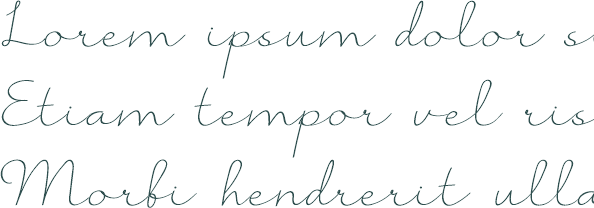 Lorem ipsum dolor s
Etiam tempor vel ris
Morbi hendrerit ulla